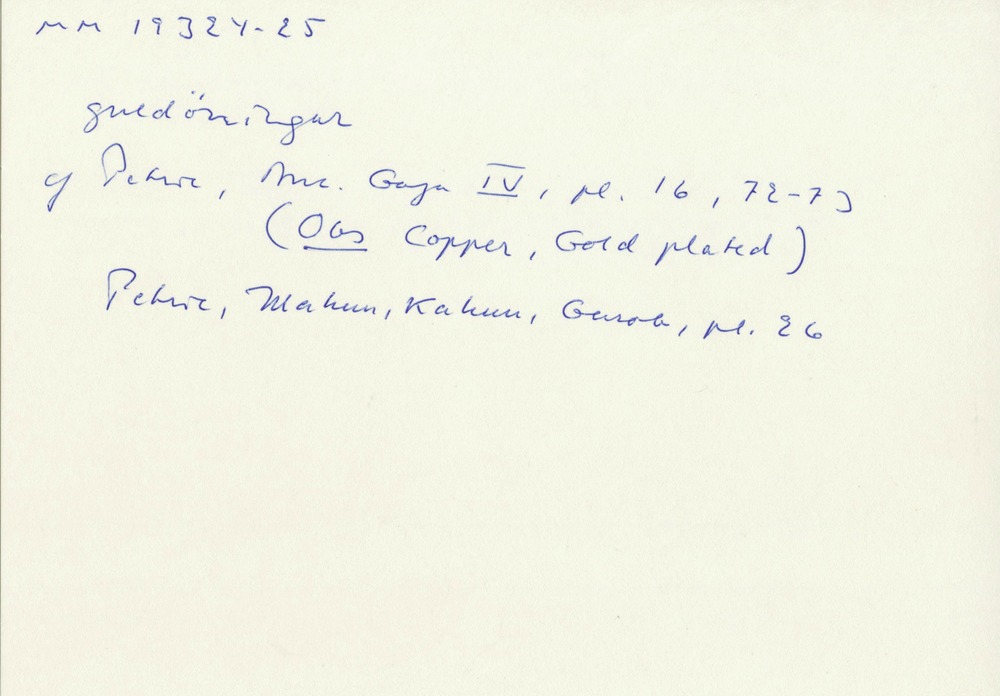 MM 19324-25
guldörringar
cf Petrie, Anc. Gaza IV, pl. 16, 72-73
(Obs Copper, Gold plated)
Petrie, Illahun, Kahun, Gurob, pl. 26